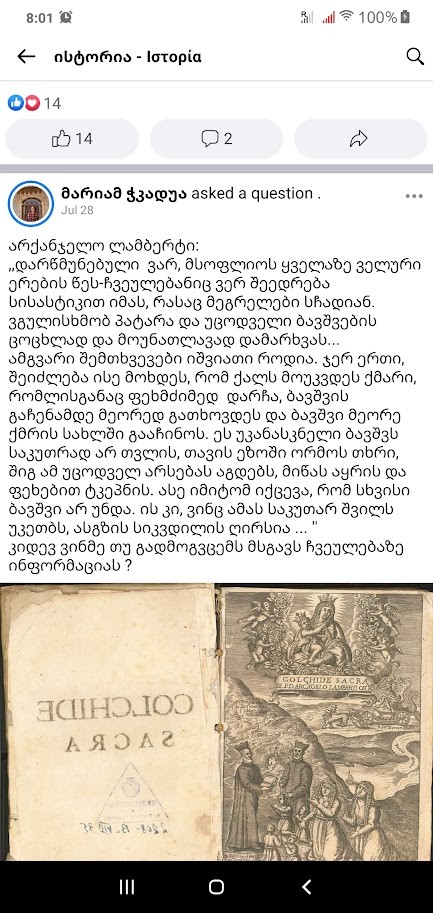 8:01
100%
ისტორია - Ιστορία
14
14
2
მარიამ ჭკადუა asked a question .
Jul 28
არქანჯელო ლამბერტი:
,,დარწმუნებული ვარ, მსოფლიოს ყველაზე ველური
ერების წეს-ჩვეულებანიც ვერ შეედრება
სისასტიკით იმას, რასაც მეგრელები სჩადიან.
ვგულისხმობ პატარა და უცოდველი ბავშვების
ცოცხლად და მოუნათლავად დამარხვას...
ამგვარი შემთხვევები იშვიათი როდია. ჯერ ერთი,
შეიძლება ისე მოხდეს, რომ ქალს მოუკვდეს ქმარი,
რომლისგანაც ფეხმძიმედ დარჩა, ბავშვის
გაჩენამდე მეორედ გათხოვდეს და ბავშვი მეორე
ქმრის სახლში გააჩინოს. ეს უკანასკნელი ბავშვს
საკუთრად არ თვლის, თავის ეზოში ორმოს თხრი,
შიგ ამ უცოდველ არსებას აგდებს, მიწას აყრის და
ფეხებით ტკეპნის. ასე იმიტომ იქცევა, რომ სხვისი
ბავშვი არ უნდა. ის კი, ვინც ამას საკუთარ შვილს
უკეთბს, ასგზის სიკვდილის ღირსია ... "
კიდევ ვინმე თუ გადმოგვცემს მსგავს ჩვეულებაზე
ინფორმაციას ?
COLCHIDE
SACRA
COLCHIDE SACRA